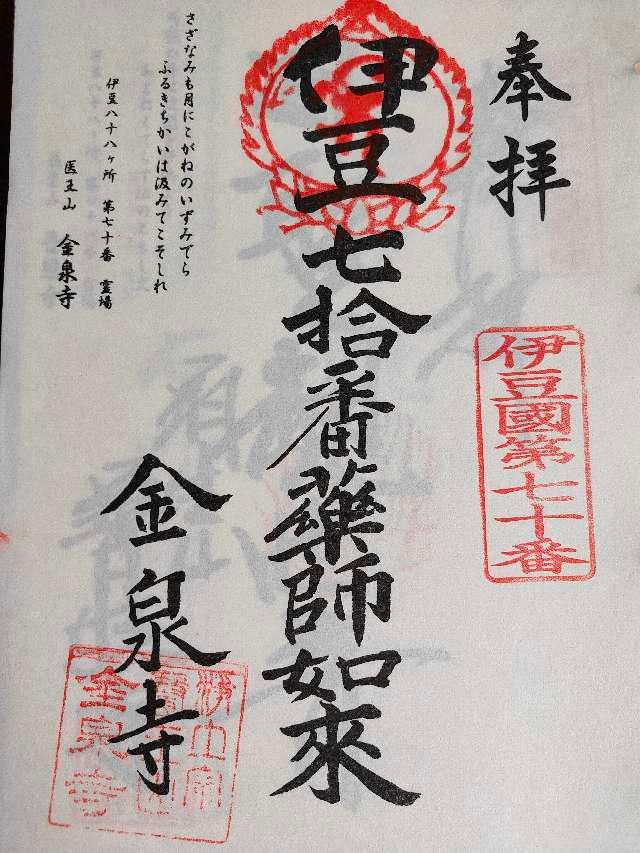 奉拝
伊豆國第七十番
伊豆七拾番薬師如來
金泉寺
さざなみも月にこがねのいずみでら
ふるきちかいは汲みてこそしれ
伊豆八十八ヶ所 第七十番 霊場
医王山 金泉寺
浄土宗
醫王山
金泉寺